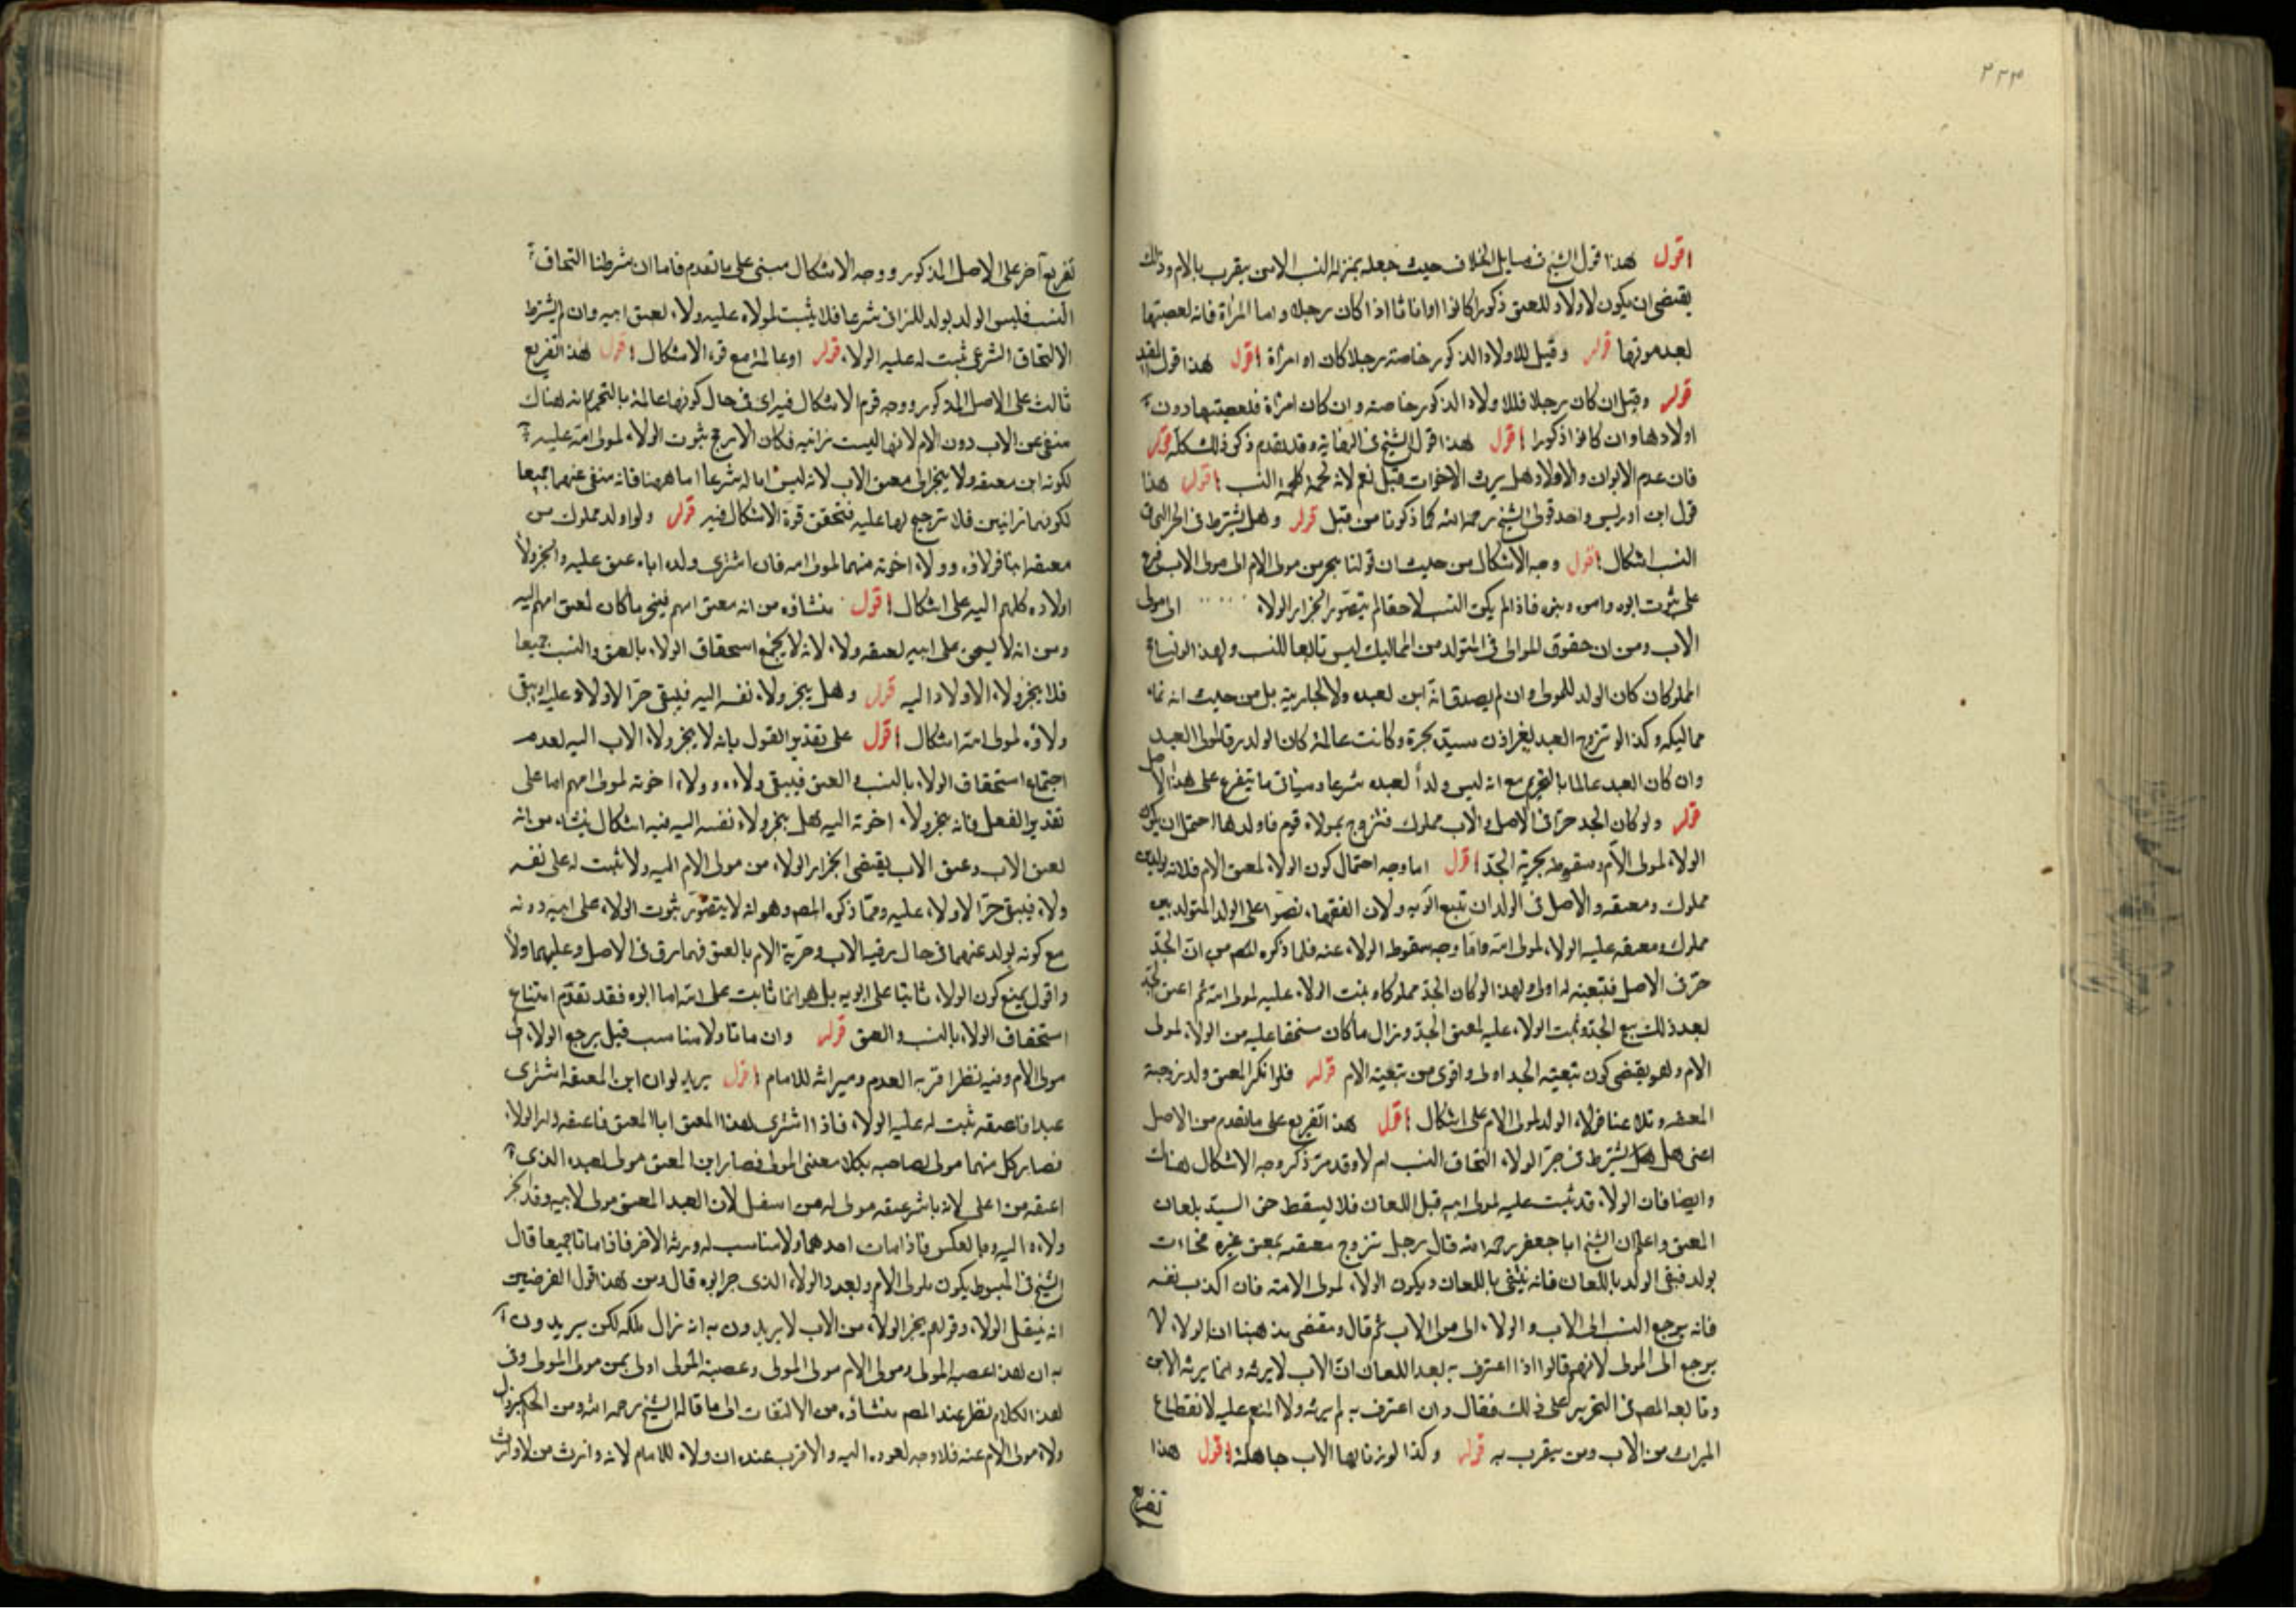 ٣٣٣
اقول هذا قول الشيخ في مسايل الخلاف حيث جعله بمنزلة النسب الا من يتقرب بالام وذلك
يقتضي ان يكون لاولاد المعتق ذكورا كانوا او اناثا اذا كان رجلا واما المراة فانه لعصبتها
بعد موتها قوله وقيل للاولاد الذكور خاصة رجلا كان او امراة اقول هذا قول المفيد
قوله وقيل ان كان رجلا فللاولاد الذكور خاصة وان كان امراة فلعصبتها دون
اولادها وان كانوا ذكورا اقول هذا قول الشيخ في النهاية وقد تقدم ذكر ذلك كله قوله
فان عدم الابوان والاولاد هل يرث الاخوات قيل نعم لانه لحمة كلحمة النسب اقول هذا
قول ابن ادريس واحد قولي الشيخ رحمه الله كما ذكرنا من قبل قوله وهل يشترط في الجر التحاق
النسب اشكال اقول وجه الاشكال من حيث ان قولنا ينجر من مولى الام الى مولى الاب فرع
على ثبوت ابوه وامه وبنوه فاذا لم يكن النسب لاحقا لم يتصور انجرار الولاء الى مولى
الاب ومن ان حقوق الموالي في المتولد من المماليك ليس تابعا للنسب ولهذا لو تسافح
المملوكان كان الولد للمولى وان لم يصدق انه ابن لعبده ولا لجاريته بل من حيث انه نماء
مماليكه وكذا لو تزوج العبد بغير اذن سيده بحرة وكانت عالمة كان الولد رقا لمولى العبد
وان كان العبد عالما بالتحريم مع انه ليس ولدا لعبده شرعا وسيأتي ما يتفرع على هذا الاصل
قوله ولو كان الجد حرا في الاصل والاب مملوك فتزوج بمولاة قوم فاولدها احتمل ان يكون
الولاء لمولى الام وسقوطه بحرية الجد اقول اما وجه احتمال كون الولاء لمعتق الام فلانه ولد بين
مملوك ومعتقه والاصل في الولد ان تتبع ابويه ولان الفقهاء نصوا على الولد المتولد بين
مملوك ومعتقه عليه الولاء لمولى امه واما وجه سقوط الولاء عنه فلما ذكره المصـ من ان الجد
حر في الاصل فتبعيته له اولى ولهذا لو كان الجد مملوكا وثبت الولاء عليه لمولى امه ثم اعتق الجد
بعد ذلك تبع الجد وثبت الولاء عليه لمعتق الجد وزال ما كان مستحقا عليه من الولاء لمولى
الام وهو يقتضي كون تبعية الجد اولى واقوى من تبعية الام قوله فلو انكر المعتق ولد زوجته
المعتقه وتلاعنا فولاء الولد لمولى الام على اشكال اقول هذا تفريع على ما تقدم من الاصل
اعني هل يشترط في جر الولاء التحاق النسب ام لا وقد مر ذكر وجه الاشكال هناك
وايضا فان الولاء قد ثبت عليه لمولى ابيه قبل اللعان فلا يسقط حق السيد بلعان
المعتق واعلم ان الشيخ ابا جعفر رحمه الله قال رجل تزوج معتقه بمعتق غيره فجاءت
بولد فنفى الولد باللعان فانه ينتفي باللعان ويكون الولاء لمولى الامه فان اكذب نفسه
فانه يرجع النسب الى الاب والولاء الى مولى الاب ثم قال ومقتضى مذهبنا ان الولاء لا
يرجع الى المولى لانهم قالوا اذا اعترف به بعد اللعان ان الاب لا يرثه وانما يرثه الابن
وتابعه المصـ في التحرير على ذلك فقال وان اعترف به لم يرثه ولا المنعم عليه لانقطاع
الميراث من الاب ومن يتقرب به قوله وكذا لو زنا بها الاب جاهلة اقول هذا
تفريع
تفريع آخر على الاصل المذكور ووجه الاشكال مبني على ما تقدم فاما ان شرطنا التحاق
النسب فليس الولد بولد للزاني شرعا فلا يثبت لمولاه عليه ولاء لعتق ابيه وان لم يشترط
الالتحاق الشرعي ثبت له عليه الولاء قوله او عالمة مع قوة الاشكال اقول هذا تفريع
ثالث على الاصل المذكور ووجه قوة الاشكال فيه اي في حال كونها عالمة بالتحريم انه هناك
منفي عن الاب دون الام لانها ليست زانيه فكان الارجح ثبوت الولاء لمولى امه عليه
لكونه ابن معتقه ولا ينجر الى معتق الاب لانه ليس ابا له شرعا اما ههنا فانه منفي عنهما جميعا
لكونهما زانيين فلا ترجيح لها عليه فتحقق قوة الاشكال فيه قوله ولو اولد مملوك من
معتقه ابنا فولاؤه وولاء اخوته منهما لمولى امه فان اشترى ولده اباه عتق عليه وانجر ولاء
اولاده كلهم اليه على اشكال اقول منشاؤه من انه معتق ابيهم فينجر ما كان لمعتق امهم اليه
ومن انه لا يستحق على ابيه لعتقه ولاء لانه لا يجتمع استحقاق الولاء بالعتق والنسب جميعا
فلا ينجر ولاء الاولاد اليه قوله وهل ينجر ولاء نفسه اليه فيبقى حرا لا ولاء عليه او يبقى
ولاؤه لمولى امه اشكال اقول على تقدير القول بانه لا ينجر ولاء الاب اليه لعدم
اجتماع استحقاق الولاء بالنسب والعتق فيبقى ولاءه وولاء اخوته لمولى امهم اما على
تقدير الفعل فانه ينجر ولاء اخوته اليه فهل ينجر ولاء نفسه اليه فيه اشكال ينشاء من انه
لعتق الاب وعتق الاب يقتضي انجرار الولاء من مولى الام اليه ولا يثبت له على نفسه
ولاء فيبقى حرا لا ولاء عليه ومما ذكره المصـ وهو انه لا يتصور ثبوت الولاء على ابيه دونه
مع كونه يولد عنهما في حال رقية الاب وحرية الام بالعتق فهما رق في الاصل وعليهما ولاء
واقول يمنع كون الولاء ثابتا على ابويه بل هو انما ثابت على امه اما ابوه فقد تقدم امتناع
استحقاق الولاء بالنسب والعتق قوله وان ماتا ولا مناسب قيل يرجع الولاء الى
مولى الام وفيه نظر اقربه العدم وميراثه للامام اقول يريد لو ان ابن المعتقه اشترى
عبدا فاعتقه ثبت له عليه الولاء فاذا اشترى هذا المعتق ابا المعتق فاعتقه وله الولاء
فصار كل منهما مولى لصاحبه بكلا معنيي المولى فصار ابن المعتق مولى لعبده الذي
اعتقه من اعلى لانه باشر عتقه مولى له من اسفل لان العبد المعتق مولى لابيه وقد انجر
ولاءه اليه وبالعكس فاذا مات احدهما ولا مناسب له ورثه الاخر فاذا ماتا جميعا قال
الشيخ في المبسوط يكون لمولى الام ويعود الولاء الذي جر ابوه قال ومن هذا قول الفرضيين
انه ينتقل الولاء وقولهم ينجر الولاء من الاب لا يريدون به انه زال ملكه لكن يريدون
به ان هذا عصبة المولى ومولى الام مولى المولى وعصبة المولى اولى بمن مولى المولى وفي
هذا الكلام نظر عند المصـ منشاؤه من الالتفات الى ما قاله الشيخ رحمه الله ومن الحكم بزوال
ولاء مولى الام عنه فلا وجه لعوده اليه والاقرب عنده ان ولاءه للامام لانه وارث من لا وارث